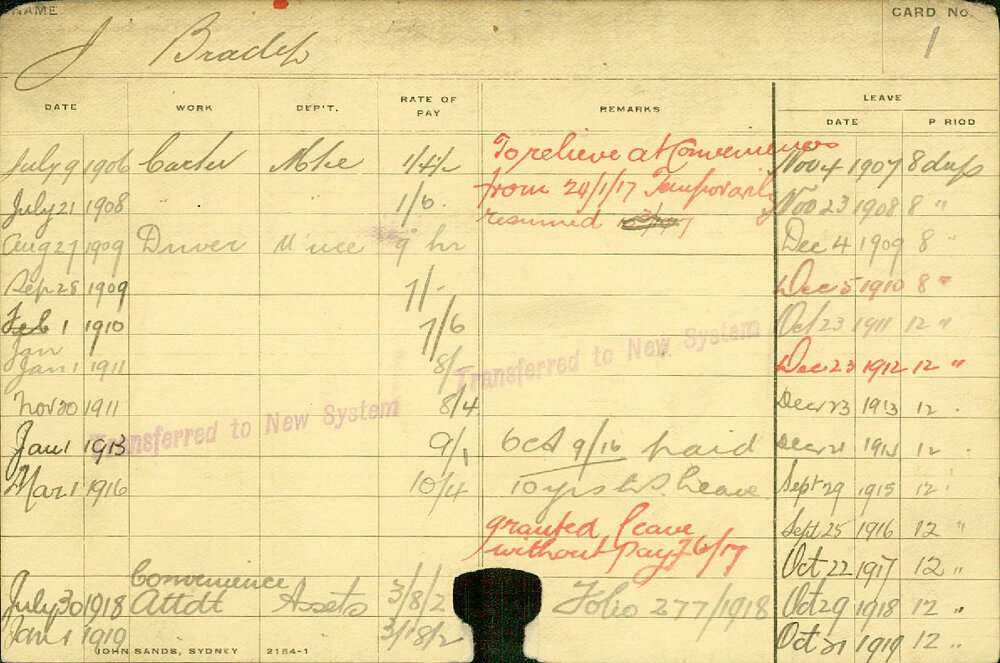 NAME CARD No.
J 1
DATE WORK DEP'T. RATE OF PAY REMARKS LEAVE
DATE P RIOD
July 9 1906 Carter To relieve at Conveniences Nov 4 1907 8 days
July 21 1908 1/6. from 24/1/17 Temporarily Nov 23 1908 8 "
resumed
Aug 27 1909 Driver 9 hr Dec 4 1909 8 "
Sep 28 1909 1/- Dec 5 1910 8 "
Feb 1 1910 7/6 Oct 23 1911 12 "
Jan
Jan 1 1911 8/ Transferred to New System Dec 23 1912 12 "
Nov 30 1911 8/4 Dec 23 1913 12 "
Transferred to New System
Jan 1 1913 9/1 Oct 9/16 paid Dec 21 1914 12 "
Mar 1 1916 10/4 10 yrs Leave Sept 29 1915 12 "
granted leave Sept 25 1916 12 "
without pay 7/6/17
Oct 22 1917 12 "
Convenience
July 30 1918 Attdt Assets 3/8/2 Folio 277/1918 Oct 29 1918 12 "
Jan 1 1919 3/18/2 Oct 21 1919 12 "
JOHN SANDS, SYDNEY 2154-1